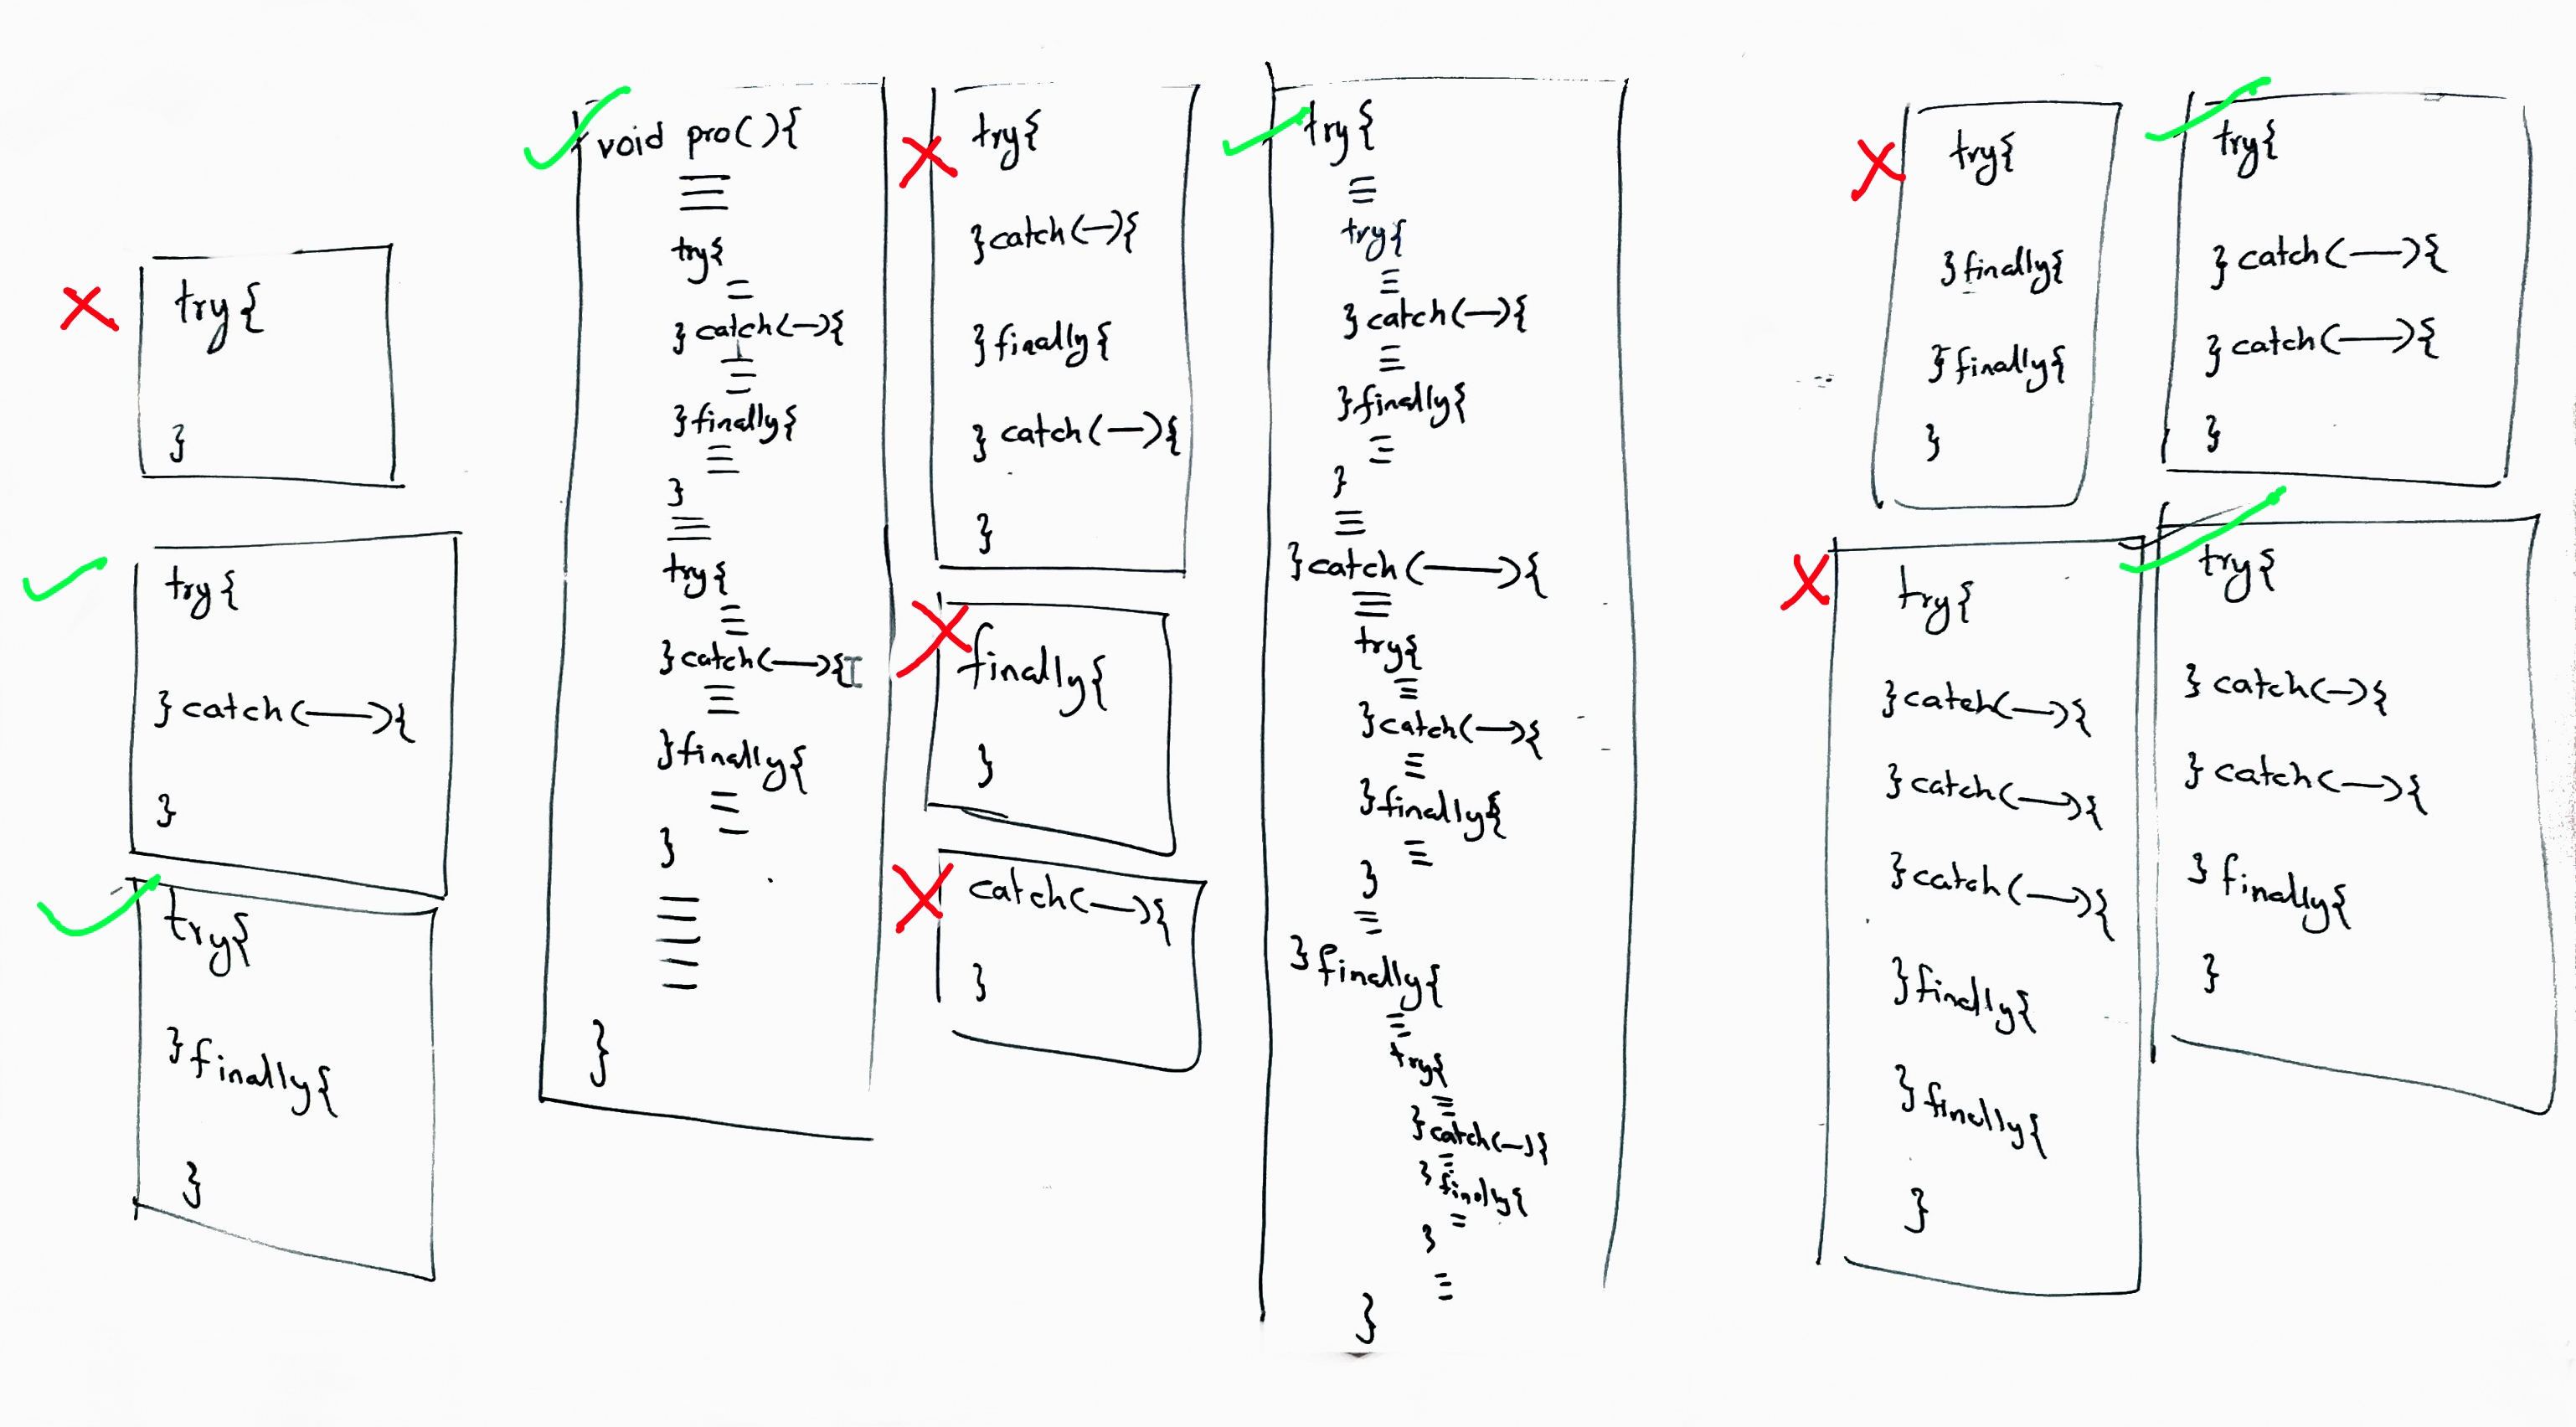 try{
}
try{
}catch(—){
}
try{
}finally{
}
void pro(){
try{
}catch(—){
}finally{
}
try{
}catch(—){
}finally{
}
}
try{
}catch(—){
}finally{
}catch(—){
}
finally{
}
catch(—){
}
try{
try{
}catch(—){
}finally{
}
}catch(—){
try{
}catch(—){
}finally{
}
}finally{
try{
}catch(—){
}finally{
}
}
try{
}finally{
}finally{
}
try{
}catch(—){
}catch(—){
}catch(—){
}finally{
}finally{
}
try{
}catch(—){
}catch(—){
}
try{
}catch(—){
}catch(—){
}finally{
}